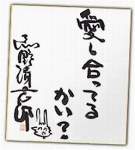 愛し合ってる
かい?
忌野清志郎